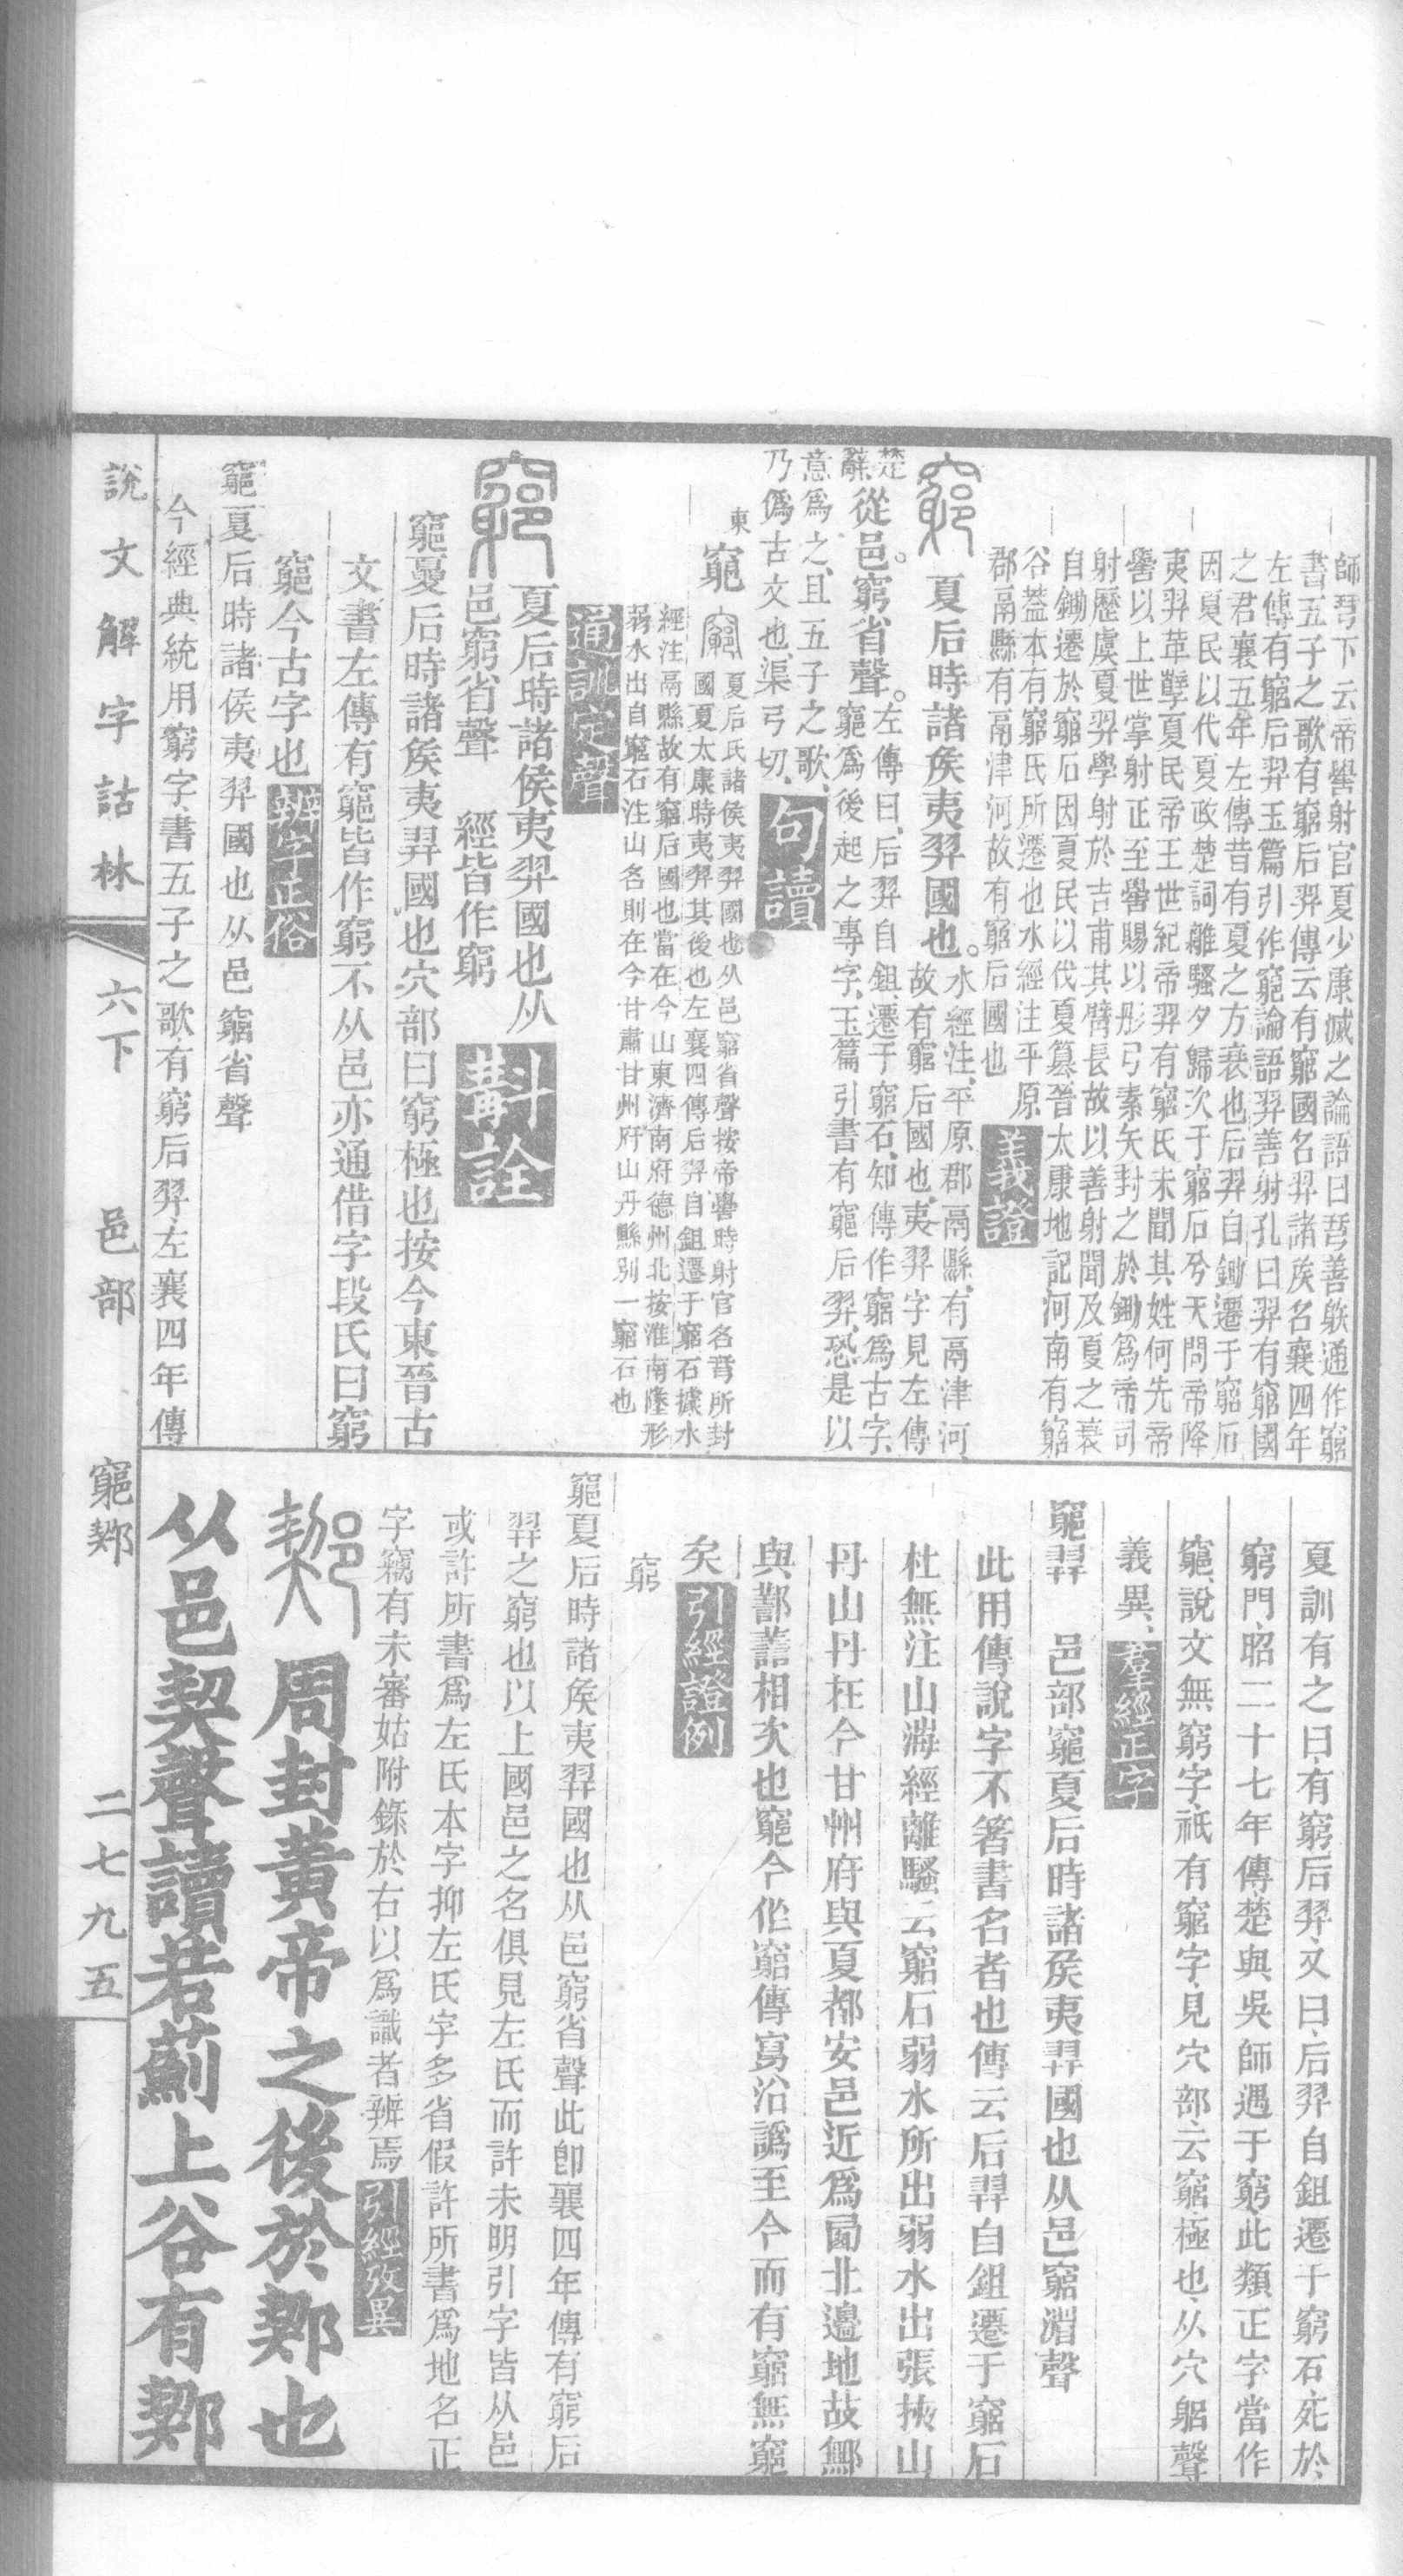 師𢎗下云帝嚳射官夏少康滅之論語曰𢎗善䠶通作竆
書五子之歌有窮后羿傳云有窮國名羿諸矦名襄四年
左傳有窮后羿玉篇引作竆論語羿善射孔曰羿有窮國
之君襄五年左傳昔有夏之方衰也后羿自鉏遷于窮石
因夏民以代夏政楚詞離騷夕歸次于窮石兮天問帝降
夷羿革孼夏民帝王世紀帝羿有窮氏未聞其姓何先帝
嚳以上世掌射正至嚳賜以彤弓素矢封之於鉏爲帝司
射歷虞夏羿學射於吉甫其臂長故以善射聞及夏之衰
自鉏遷於窮石因夏民以代夏篡晉太康地記河南有窮
谷葢本有窮氏所遷也水經注平原
郡鬲縣有鬲津河故有窮后國也
義證
竆 夏后時諸矦夷羿國也。水經注、平原郡鬲縣、有鬲津河、
故有窮后國也、夷羿字見左傳
楚辭從邑。窮省聲。左傳曰、后羿自鉏、遷于窮石、知傳作窮爲古字、
竆爲後起之專字、玉篇引書有竆后羿、恐是以
意爲之、且五子之歌、
乃僞古文也、渠弓切、
句讀
東 竆 竆 夏后氏諸侯夷羿國也从邑窮省聲按帝嚳時射官名𢎗所封
國夏太康時夷羿其後也左襄四傳后羿自鉏遷于窮石據水
經注鬲縣故有窮后國也當在今山東濟南府德州北按淮南墬形
弱水出自窮石注山名則在今甘肅甘州府山丹縣別一窮石也
通訓定聲
竆 夏后時諸侯夷羿國也从
邑窮省聲 經皆作窮
斠詮
竆夏后時諸矦夷羿國也穴部曰窮極也按今東晉古
文書左傳有竆皆作窮不从邑亦通借字段氏曰窮
竆今古字也
辨字正俗
竆夏后時諸侯夷羿國也从邑竆省聲
今經典統用窮字、書五子之歌、有窮后羿、左襄四年傳
夏訓有之曰、有窮后羿、又曰、后羿自鉏遷于窮石、死於
窮門、昭二十七年傳、楚與吳師遇于窮、此類正字當作
竆、說文無窮字、祇有竆字、見穴部、云竆、極也、从穴躳聲
義異、
羣經正字
竆羿 邑部竆夏后時諸矦夷羿國也从邑窮渻聲
此用傳說字不箸書名者也傳云后羿自鉏遷于窮石
杜無注山海經離騷云窮石弱水所出弱水出張掖山
丹山丹在今甘州府與夏都安邑近爲國北邊地故鄳
與鄯䓿相次也竆今作窮傳寫沿譌至今而有窮無竆
矣
引經證例
窮
竆夏后時諸矦夷羿國也从邑窮省聲此卽襄四年傳有窮后
羿之窮也以上國邑之名俱見左氏而許未明引字皆从邑
或許所書爲左氏本字抑左氏字多省假許所書爲地名正
字竊有未審姑附錄於右以爲識者辨焉
引經攷異
䣠 周封黃帝之後於䣠也
从邑契聲讀若薊上谷有䣠
說文解字詁林 六下 邑部 竆䣠 二七九五